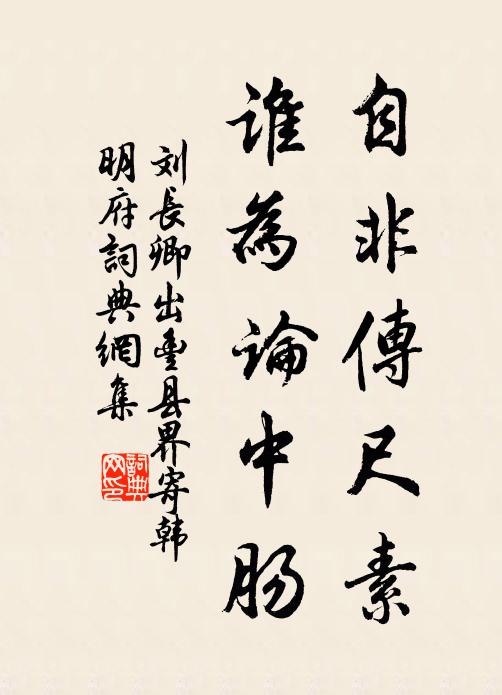 自非傳尺素
誰為論中肠
刘長卿出豊县界寄韩
明府詞典網集
詞典
网印